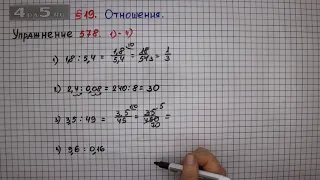 §19. Отношения.
Упражнение 578. 1)-4)
1) 1,8 : 5,4 = 1,8/5,4 = 18/54 3 = 1/3
2) 2,4 : 0,08 = 240 : 8 = 30
3) 3,5 : 49 = 3,5/49 = 35 5/490 70 =
4) 9,6 : 0,16